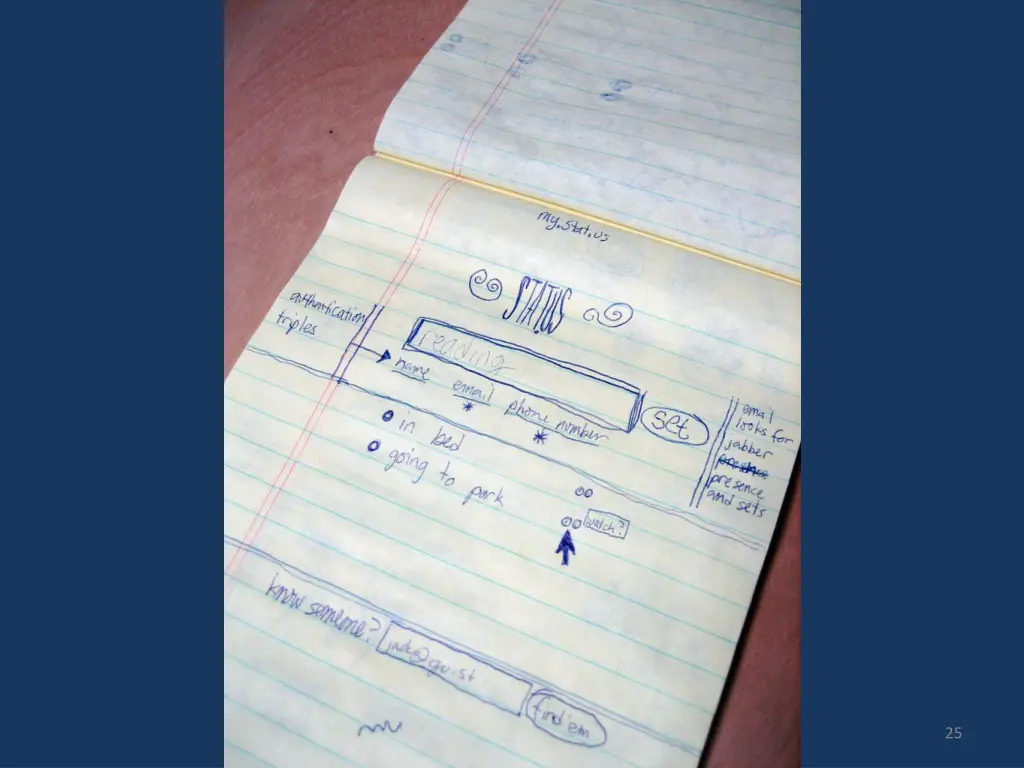 my.stat.us
STAT.US
authentication
triples
reading
name email phone number
set
email
looks for
jabber
presence
presence
and sets
in bed
going to park
watch?
know someone?
find'em
25